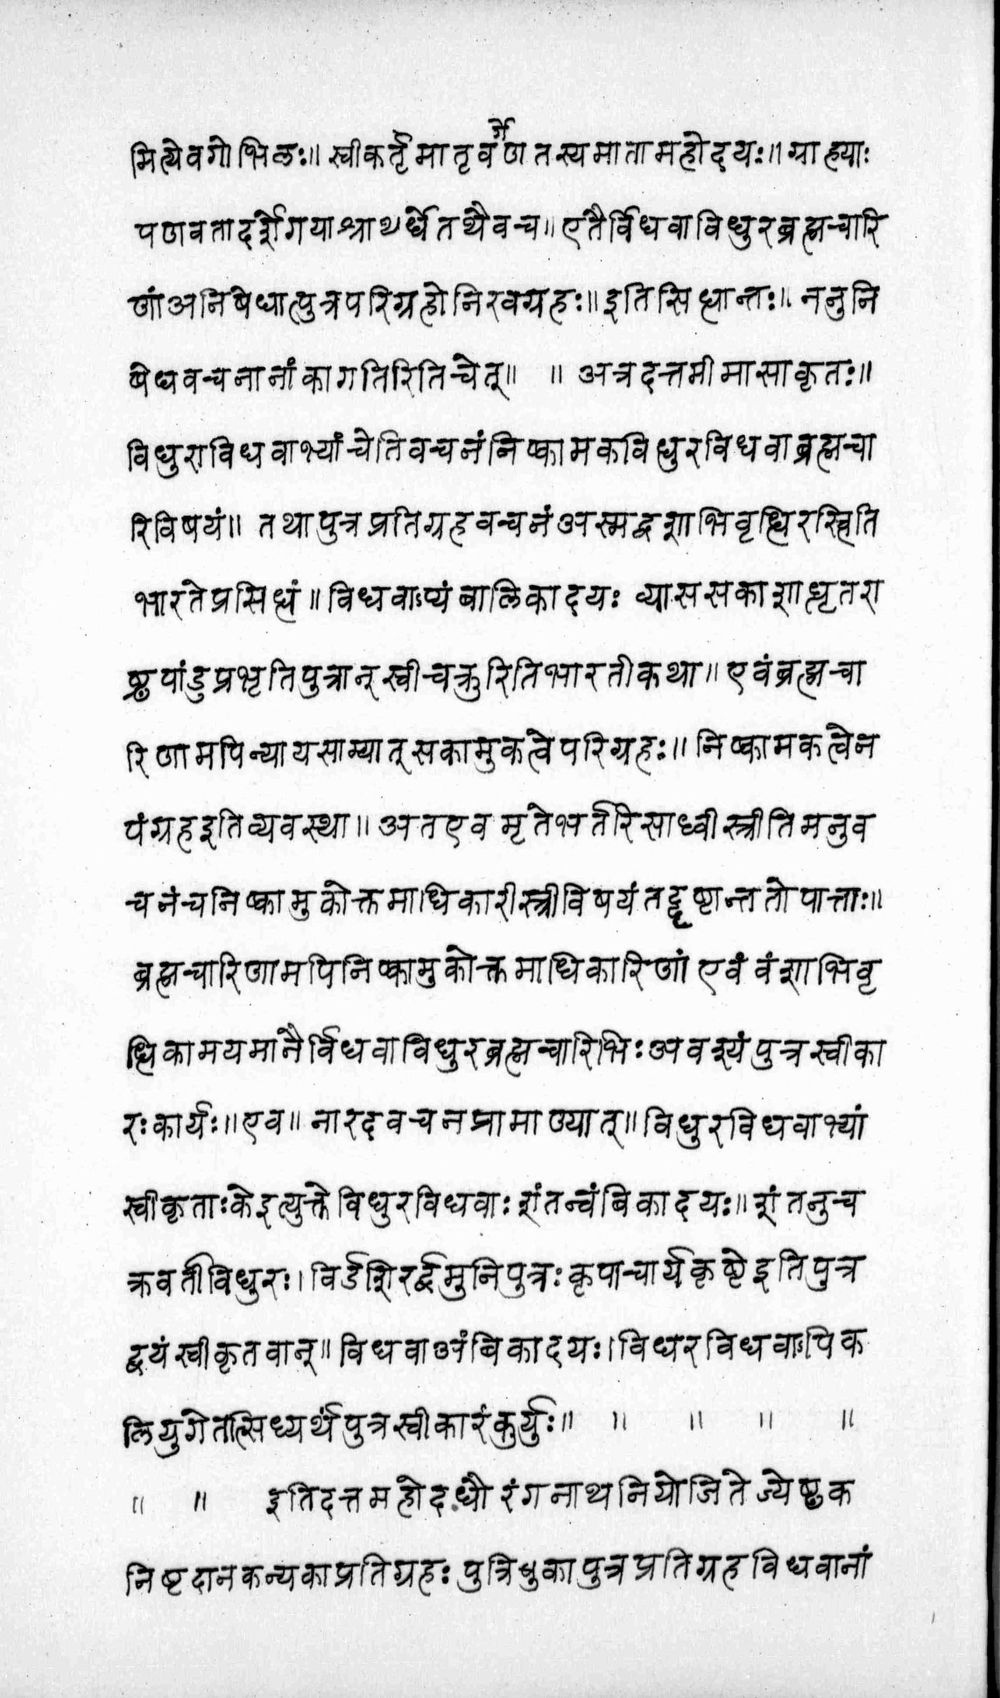 मित्येवगोभिळः॥ स्वीकर्तृमातृवर्गेण तस्यमातामहोदयः॥ ग्राह्याः
पणवतादर्शेगयाश्राथर्धेतथैवच॥ एतैर्विधवाविधुरब्रह्मचारि
णांअनिषेधात्पुत्रपरिग्रहोनिरवग्रहः॥ इतिसिध्धान्तः॥ ननुनि
षेधवचनानांकागतिरितिचेत्॥ ॥ अत्रदत्तमीमासाकृतः॥
विधुराविधवाभ्यांचेतिवचनंनिष्कामकविधुरविधवाब्रह्मचा
रिविषयं॥ तथापुत्रप्रतिग्रहवचनंअस्मद्वशाभिवृध्धिरस्विति
भारतेप्रसिध्धं॥ विधवाःप्यंबालिकादयः व्याससकाशाध्धृतरा
ष्ट्रपांडुप्रभृतिपुत्रान् स्वीचक्रुरितिभारतीकथा॥ एवंब्रह्मचा
रिणामपिन्यायसाम्यात् सकामुकत्वेपरिग्रहः॥ निष्कामकत्वेन
पंग्रहइतिव्यवस्था॥ अतएव मृतेभर्तरिसाध्वीस्त्रीतिमनुव
चनंचनिष्कामुकोक्तमाधिकारीस्त्रीविषयंतद्दृष्टान्ततोपात्ताः॥
ब्रह्मचारिणामपिनिष्कामुकोक्तमाधिकारिणां एवं वंशाभिवृ
ध्धिकामयमानैर्विधवाविधुरब्रह्मचारिभिःअवश्यंपुत्रस्वीका
रःकार्यः॥ एव॥ नारदवचनप्रामाण्यात्॥ विधुरविधवाभ्यां
स्वीकृताःकेइत्युक्तेविधुरविधवाः शंतन्वंबिकादयः॥ शंतनुच
क्रवर्तीविधुरः। विर्डशिरर्द्वमुनिपुत्रः कृपाचार्यकृष्टेइतिपुत्र
द्वयंस्वीकृतवान्॥ विधवाअंबिकादयः। विधरविधवाःपिक
लियुगेतत्सिध्यर्थंपुत्रस्वीकारंकुर्युः॥ ॥ ॥ ॥ ॥
॥ ॥ इतिदत्तमहोदधौ रंगनाथनियोजिते ज्येष्ठक
निष्टदानकन्यकाप्रतिग्रहः पुत्रिधुकापुत्रप्रतिग्रहविधवानां